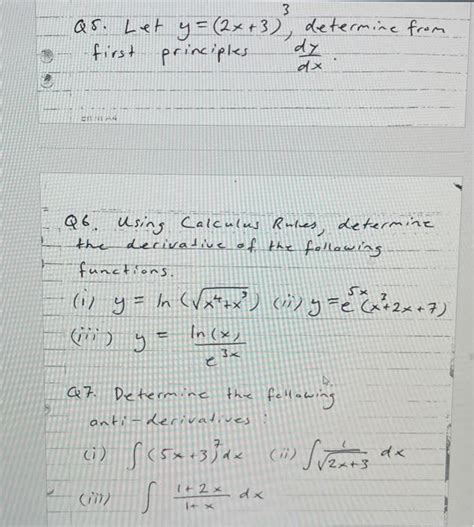 Q5. Let y = (2x+3)³, determine from
first principles dy/dx.
Q6. Using Calculus Rules, determine
the derivative of the following
functions.
(i) y = ln(√(x⁴+x³)) (ii) y = e^(5x)(x³+2x+7)
(iii) y = ln(x)/e^(3x)
Q7. Determine the following
anti-derivatives:
(i) ∫(5x+3)⁷dx (ii) ∫ 1/√(2x+3) dx
(iii) ∫ (1+2x)/(1+x) dx